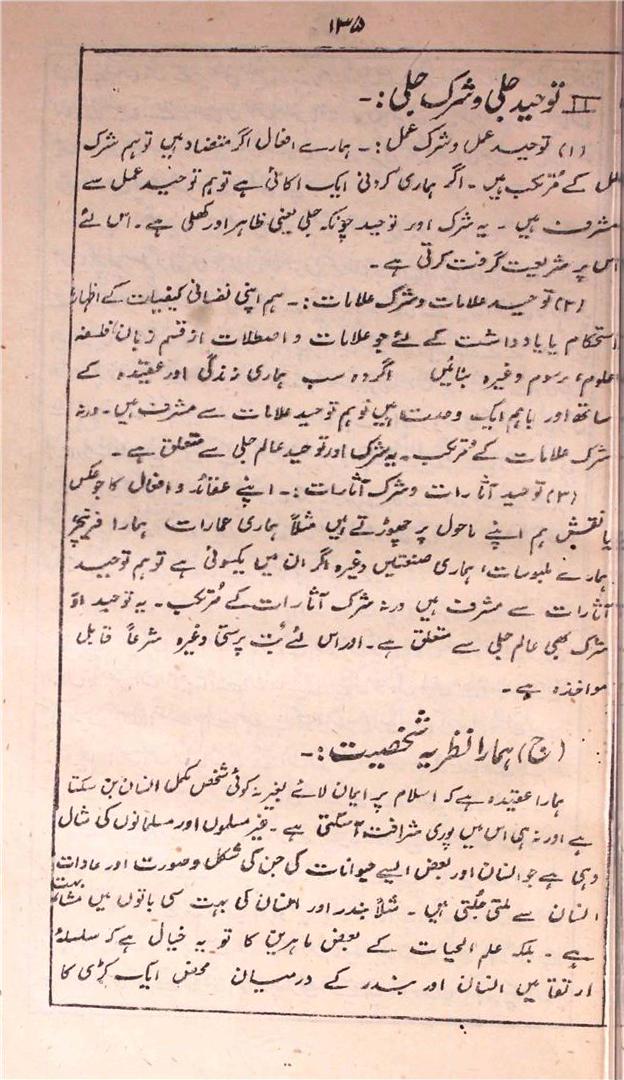 ۱۳۵
II توحید جلی و شرک جلی:۔
(۱) توحید عمل و شرک عمل:۔ ہمارے افعال اگر متضاد ہیں تو ہم شرک
عمل کے مُرتکب ہیں۔ اگر ہماری کرنی ایک اکائی ہے تو ہم توحید عمل سے
مشرف ہیں۔ یہ شرک اور توحید چونکہ جلی یعنی ظاہر اور کھلی ہے۔ اس لئے
اس پر شریعت گرفت کرتی ہے۔
(۲) توحید علامات و شرک علامات:۔ ہم اپنی نفسانی کیفیات کے اظہار
استحکام یا یادداشت کے لئے جو علامات و اصطلات از قسم زبان، فلسفہ
علوم، رسوم وغیرہ بنائیں اگر وہ سب ہماری زندگی اور عقیدہ کے
ساتھ اور باہم ایک وحدت ہیں تو ہم توحید علامات سے مشرف ہیں۔ ورنہ
شرک علامات کے مُرتکب۔ یہ شرک اور توحید عالم جلی سے متعلق ہے۔
(۳) توحید آثارات و شرک آثارات:۔ اپنے عقائد و افعال کا جو عکس
یا نقش ہم اپنے ماحول پر چھوڑتے ہیں مثلاً ہماری عمارات ہمارا فرنیچر
ہمارے ملبوسات، ہماری صنعتیں وغیرہ اگر ان میں یکسوئی ہے تو ہم توحید
آثارات سے مشرف ہیں ورنہ شرک آثارات کے مُرتکب۔ یہ توحید اور
شرک بھی عالم جلی سے متعلق ہے۔ اور اس لئے بُت پرستی وغیرہ شرعاً قابل
مواخذہ ہے۔
(ج) ہمارا نظریہ شخصیت:۔
ہمارا عقیدہ ہے کہ اسلام پر ایمان لائے بغیر نہ کوئی شخص مکمل انسان بن سکتا
ہے اور نہ ہی اس میں پوری شرافت آسکتی ہے۔ غیر مسلموں اور مسلمانوں کی مثال
وہی ہے جو انسان اور بعض ایسے حیوانات کی جن کی شکل و صورت اور عادات
انسان سے ملتی جُلتی ہیں۔ مثلاً بندر اور انسان کی بہت سی باتوں میں مشابہت
ہے۔ بلکہ علم الحیات کے بعض ماہرین کا تو یہ خیال ہے کہ سلسلۂ
ارتقا میں انسان اور بندر کے درمیان محض ایک کڑی کا